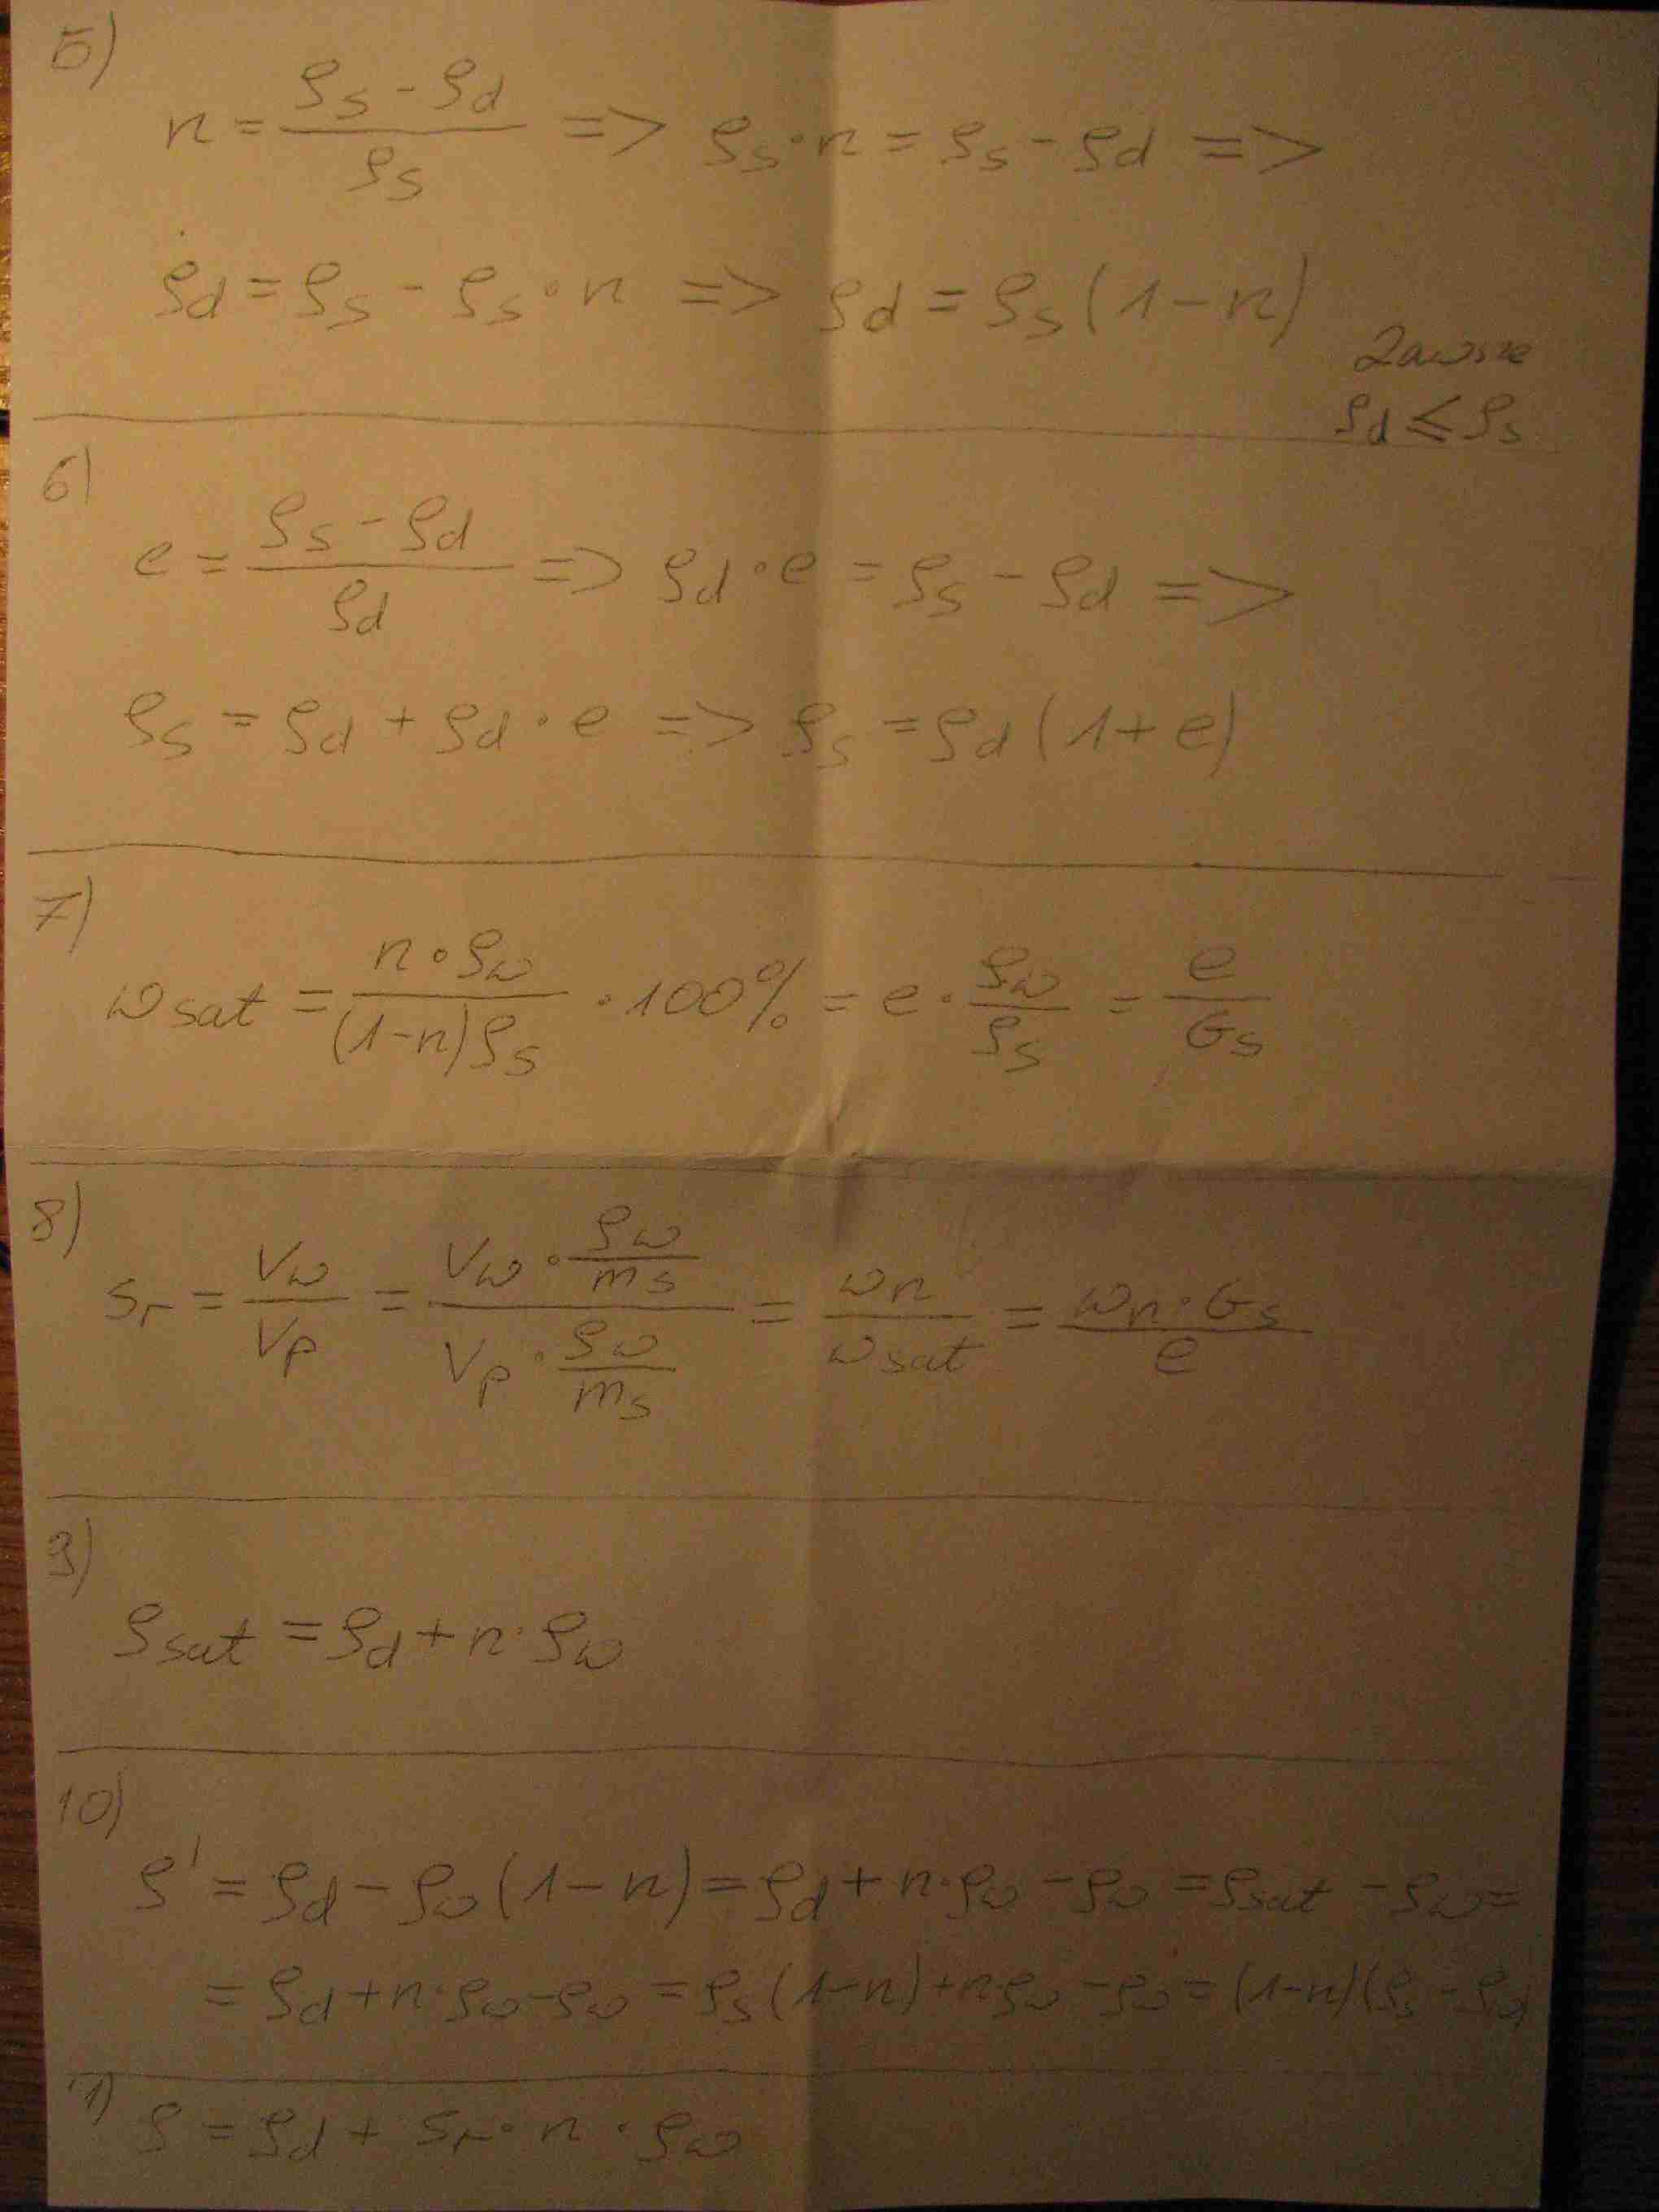 5)
n = (ρs - ρd) / ρs => ρs · n = ρs - ρd =>
ρd = ρs - ρs · n => ρd = ρs (1 - n)
Zawsze
ρd ≤ ρs
6)
e = (ρs - ρd) / ρd => ρd · e = ρs - ρd =>
ρs = ρd + ρd · e => ρs = ρd (1 + e)
7)
wsat = (n · ρw) / ((1-n)ρs) · 100% = e · ρw / ρs = e / Gs
8)
Sr = Vw / Vp = (Vw · ρw / ms) / (Vp · ρw / ms) = wn / wsat = (wn · Gs) / e
9)
ρsat = ρd + n · ρw
10)
ρ' = ρd - ρw (1 - n) = ρd + n · ρw - ρw = ρsat - ρw =
= ρd + n · ρw - ρw = ρs (1-n) + n · ρw - ρw = (1-n)(ρs - ρw)
11)
ρ = ρd + Sr · n · ρw